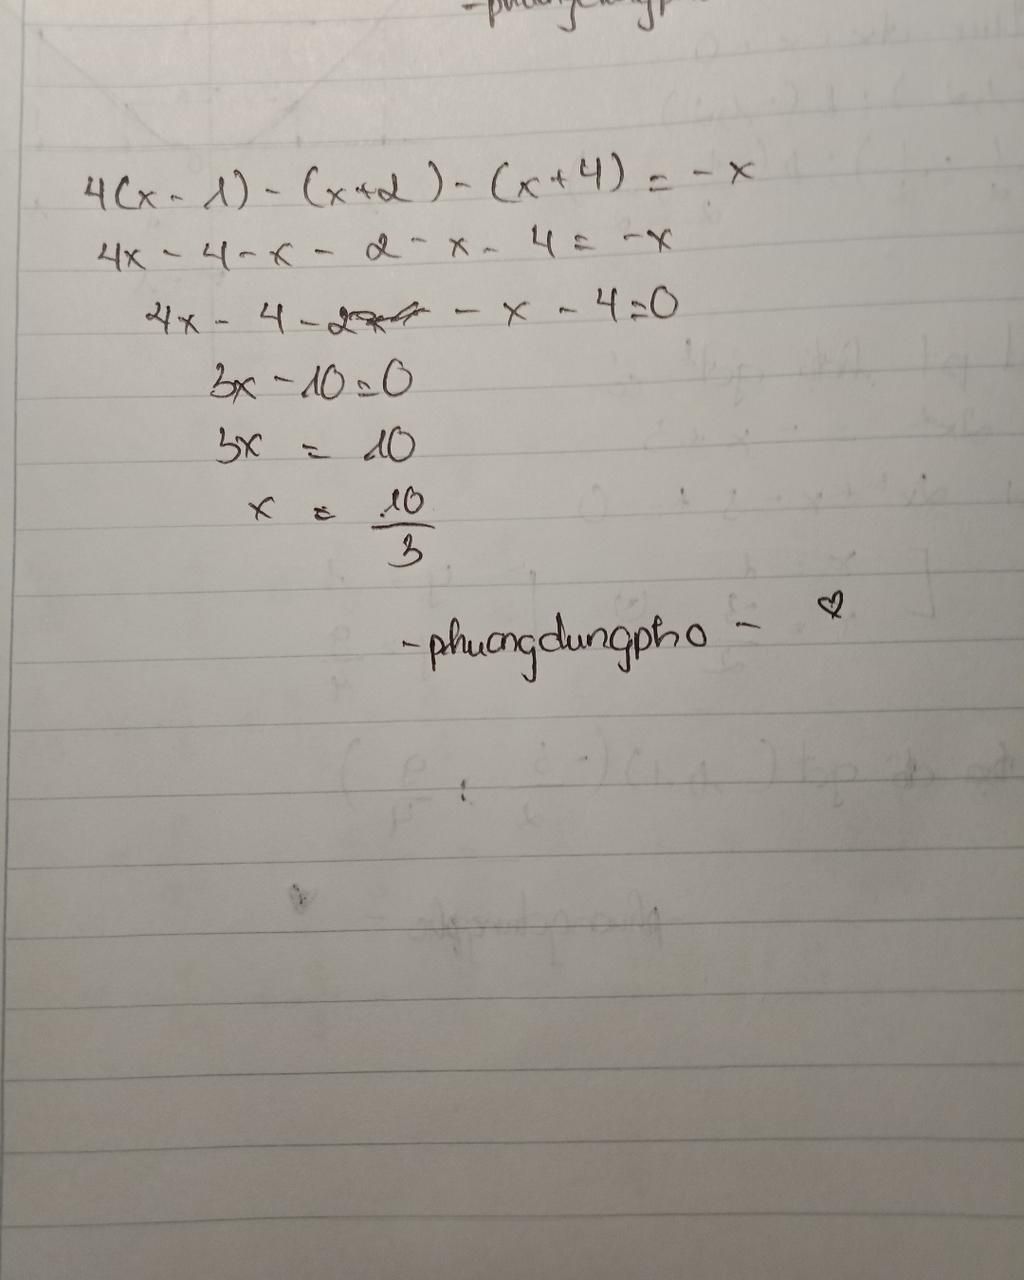 4(x - 1) - (x+2) - (x+4) = - x
4x - 4 - x - 2 - x - 4 = -x
4x - 4 - 2 - x - 4 = 0
3x - 10 = 0
3x = 10
x = 10/3
- phuongdungpho - ♡